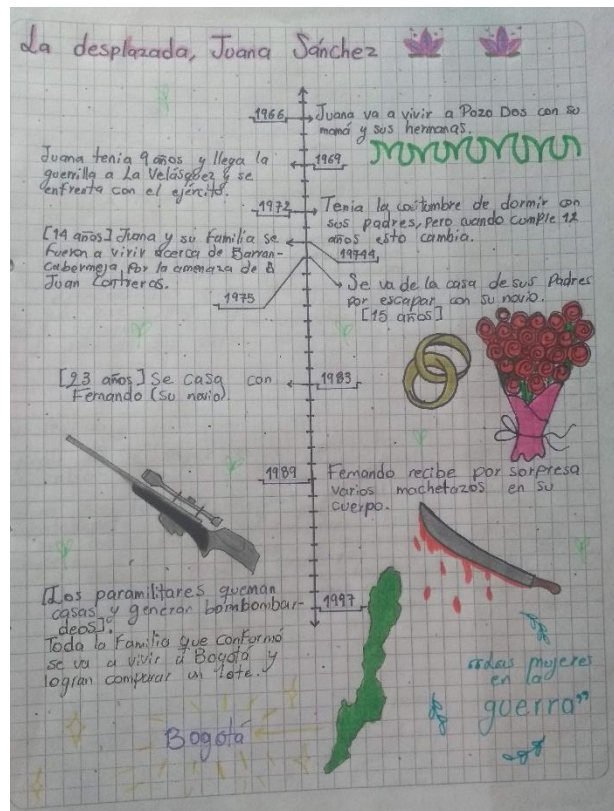 La desplazada, Juana Sánchez
1966
Juana va a vivir a Pozo Dos con su
mamá y sus hermanas.
Juana tenia 9 años y llega la
guerrilla a La Velásquez y se
enfrenta con el ejército.
1969
1972
Tenia la costumbre de dormir con
sus padres, pero cuando cumple 12
años esto cambia.
[14 años] Juana y su familia se
fueron a vivir acerca de Barran-
cabermeja, por la amenaza de
Juan Contreras.
19744
Se va de la casa de sus Padres
por escapar con su novio.
[15 años]
1975
[23 años] Se casa con
Fernando (su novio).
1983
1989
Fernando recibe por sorpresa
varios machetazos en su
cuerpo.
[Los paramilitares queman
casas y generan bombombar-
deos].
Toda la familia que conformó
se va a vivir a Bogotá y
logran comparar un lote.
1997
Bogotá
"Las mujeres
en la
guerra"